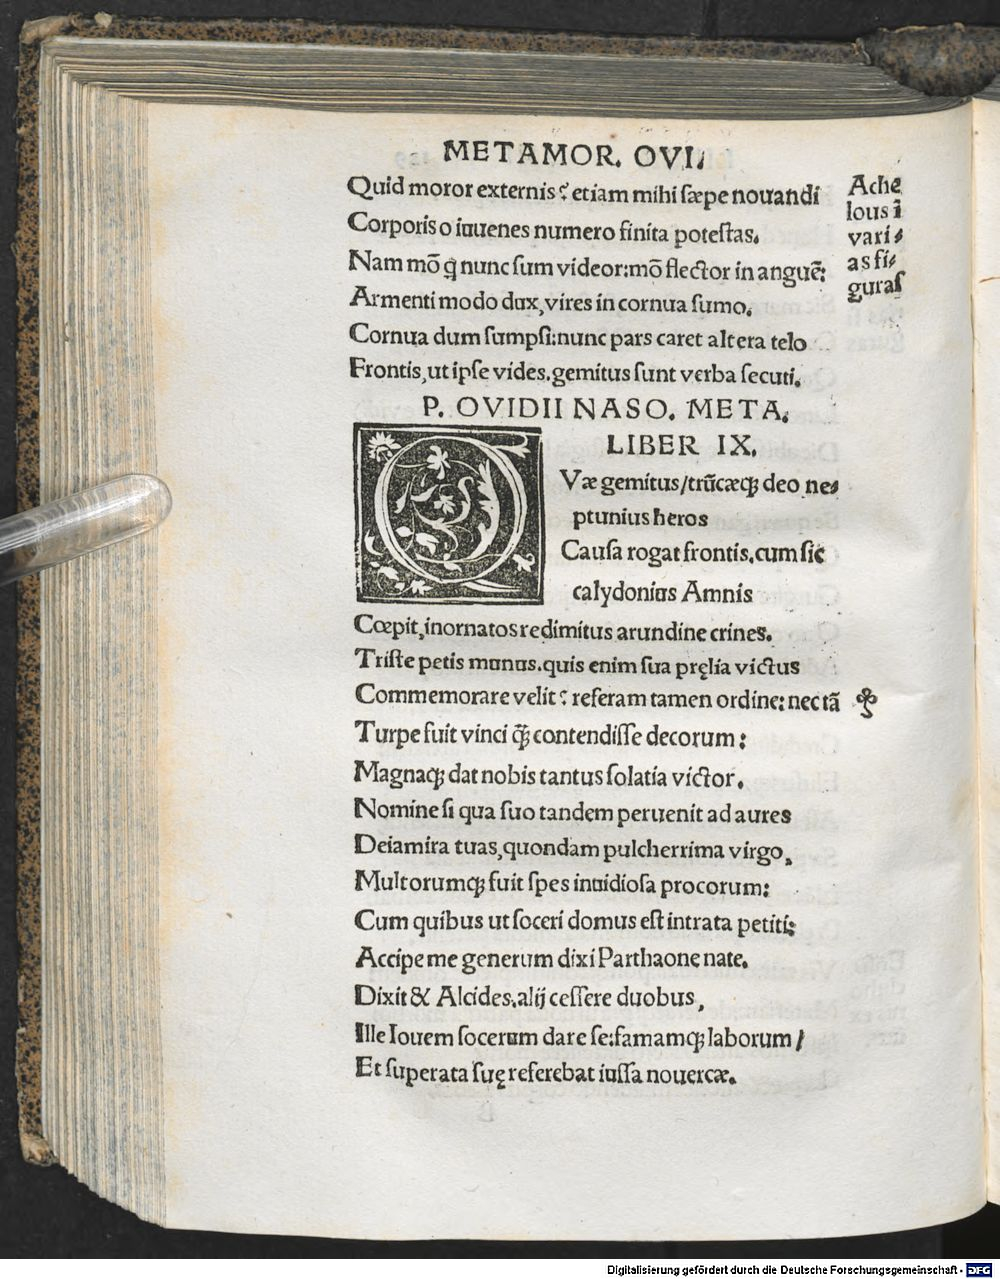 METAMOR. OVI.
Quid moror externis? etiam mihi sæpe nouandi
Corporis o iuuenes numero finita potestas.
Nam mõ ꝗ nunc sum videor:mõ flector in anguẽ:
Armenti modo dux,vires in cornua sumo.
Cornua dum sumpsi:nunc pars caret altera telo
Frontis,ut ipse vides.gemitus sunt verba secuti.
Ache
lous ĩ
vari⸗
as fi⸗
guras
P. OVIDII NASO. META.
LIBER IX.
QVæ gemitus/trũcæqꝫ deo ne⸗
ptunius heros
Causa rogat frontis.cum sic
calydonius Amnis
Cœpit,inornatos redimitus arundine crines.
Triste petis munus.quis enim sua pręlia victus
Commemorare velit? referam tamen ordine:nec tã
Turpe fuit vinci ꝗ̃ contendisse decorum:
Magnaqꝫ dat nobis tantus solatia victor.
Nomine si qua suo tandem peruenit ad aures
Deiamira tuas,quondam pulcherrima virgo,
Multorumqꝫ fuit spes inuidiosa procorum:
Cum quibus ut soceri domus est intrata petiti:
Accipe me generum dixi Parthaone nate.
Dixit & Alcides.alij cessere duobus,
Ille Iouem socerum dare se:famamqꝫ laborum/
Et superata suę referebat iussa nouercæ.
Digitalisierung gefördert durch die Deutsche Forschungsgemeinschaft - DFG